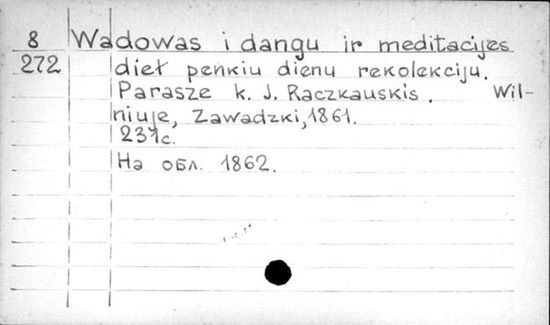 8
272
Wadowas i dangu ir meditacijes
dieł penkiu dienu rekolekciju.
Parasze k. J. Raczkauskis. Wil-
niuje, Zawadzki, 1861.
231 с.
На обл. 1862.